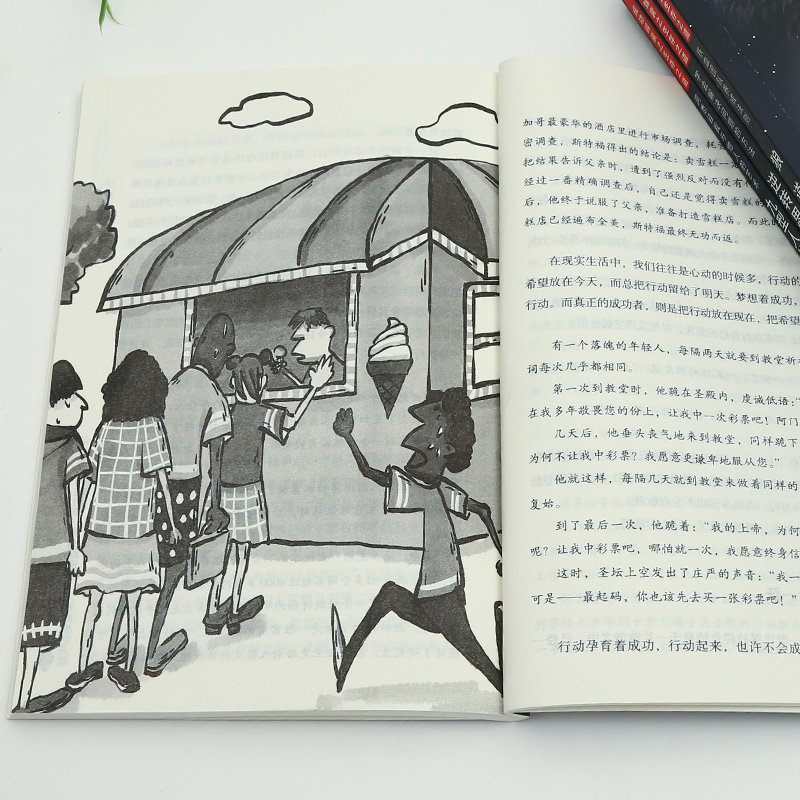 加哥最豪华的酒店里进行市场调查，耗
密调查，斯特福得出的结论是：卖雪糕一
把结果告诉父亲时，遭到了强烈反对而没有
经过一番精确调查后，自己还是觉得卖雪糕的
后，他终于说服了父亲，准备打造雪糕店。而此
糕店已经遍布全美，斯特福最终无功而返。
在现实生活中，我们往往是心动的时候多，行动的
希望放在今天，而总把行动留给了明天。梦想着成功，
行动。而真正的成功者，则是把行动放在现在，把希望
有一个落魄的年轻人，每隔两天就要到教堂祈
词每次几乎都相同。
第一次到教堂时，他跪在圣殿内，虔诚低语：“
在我多年敬畏您的份上，让我中一次彩票吧！阿门
几天后，他垂头丧气地来到教堂，同样跪下
为何不让我中彩票？我愿意更谦卑地服从您。”
他就这样，每隔几天就到教堂来做着同样的
复始。
到了最后一次，他跪着：“我的上帝，为何
呢？让我中彩票吧，哪怕就一次，我愿意终身信
这时，圣坛上空发出了庄严的声音：“我一
可是——最起码，你也该先去买一张彩票吧！”
行动孕育着成功，行动起来，也许不会成